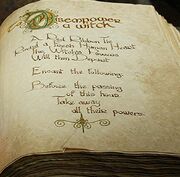 Disempower
a witch
A Red Ribbon Tie
Round a Fresh Human Heart
The Witch's Powers
Will then Depart
Enchant the following:
Before the passing
of this hour,
Take away
all their powers.